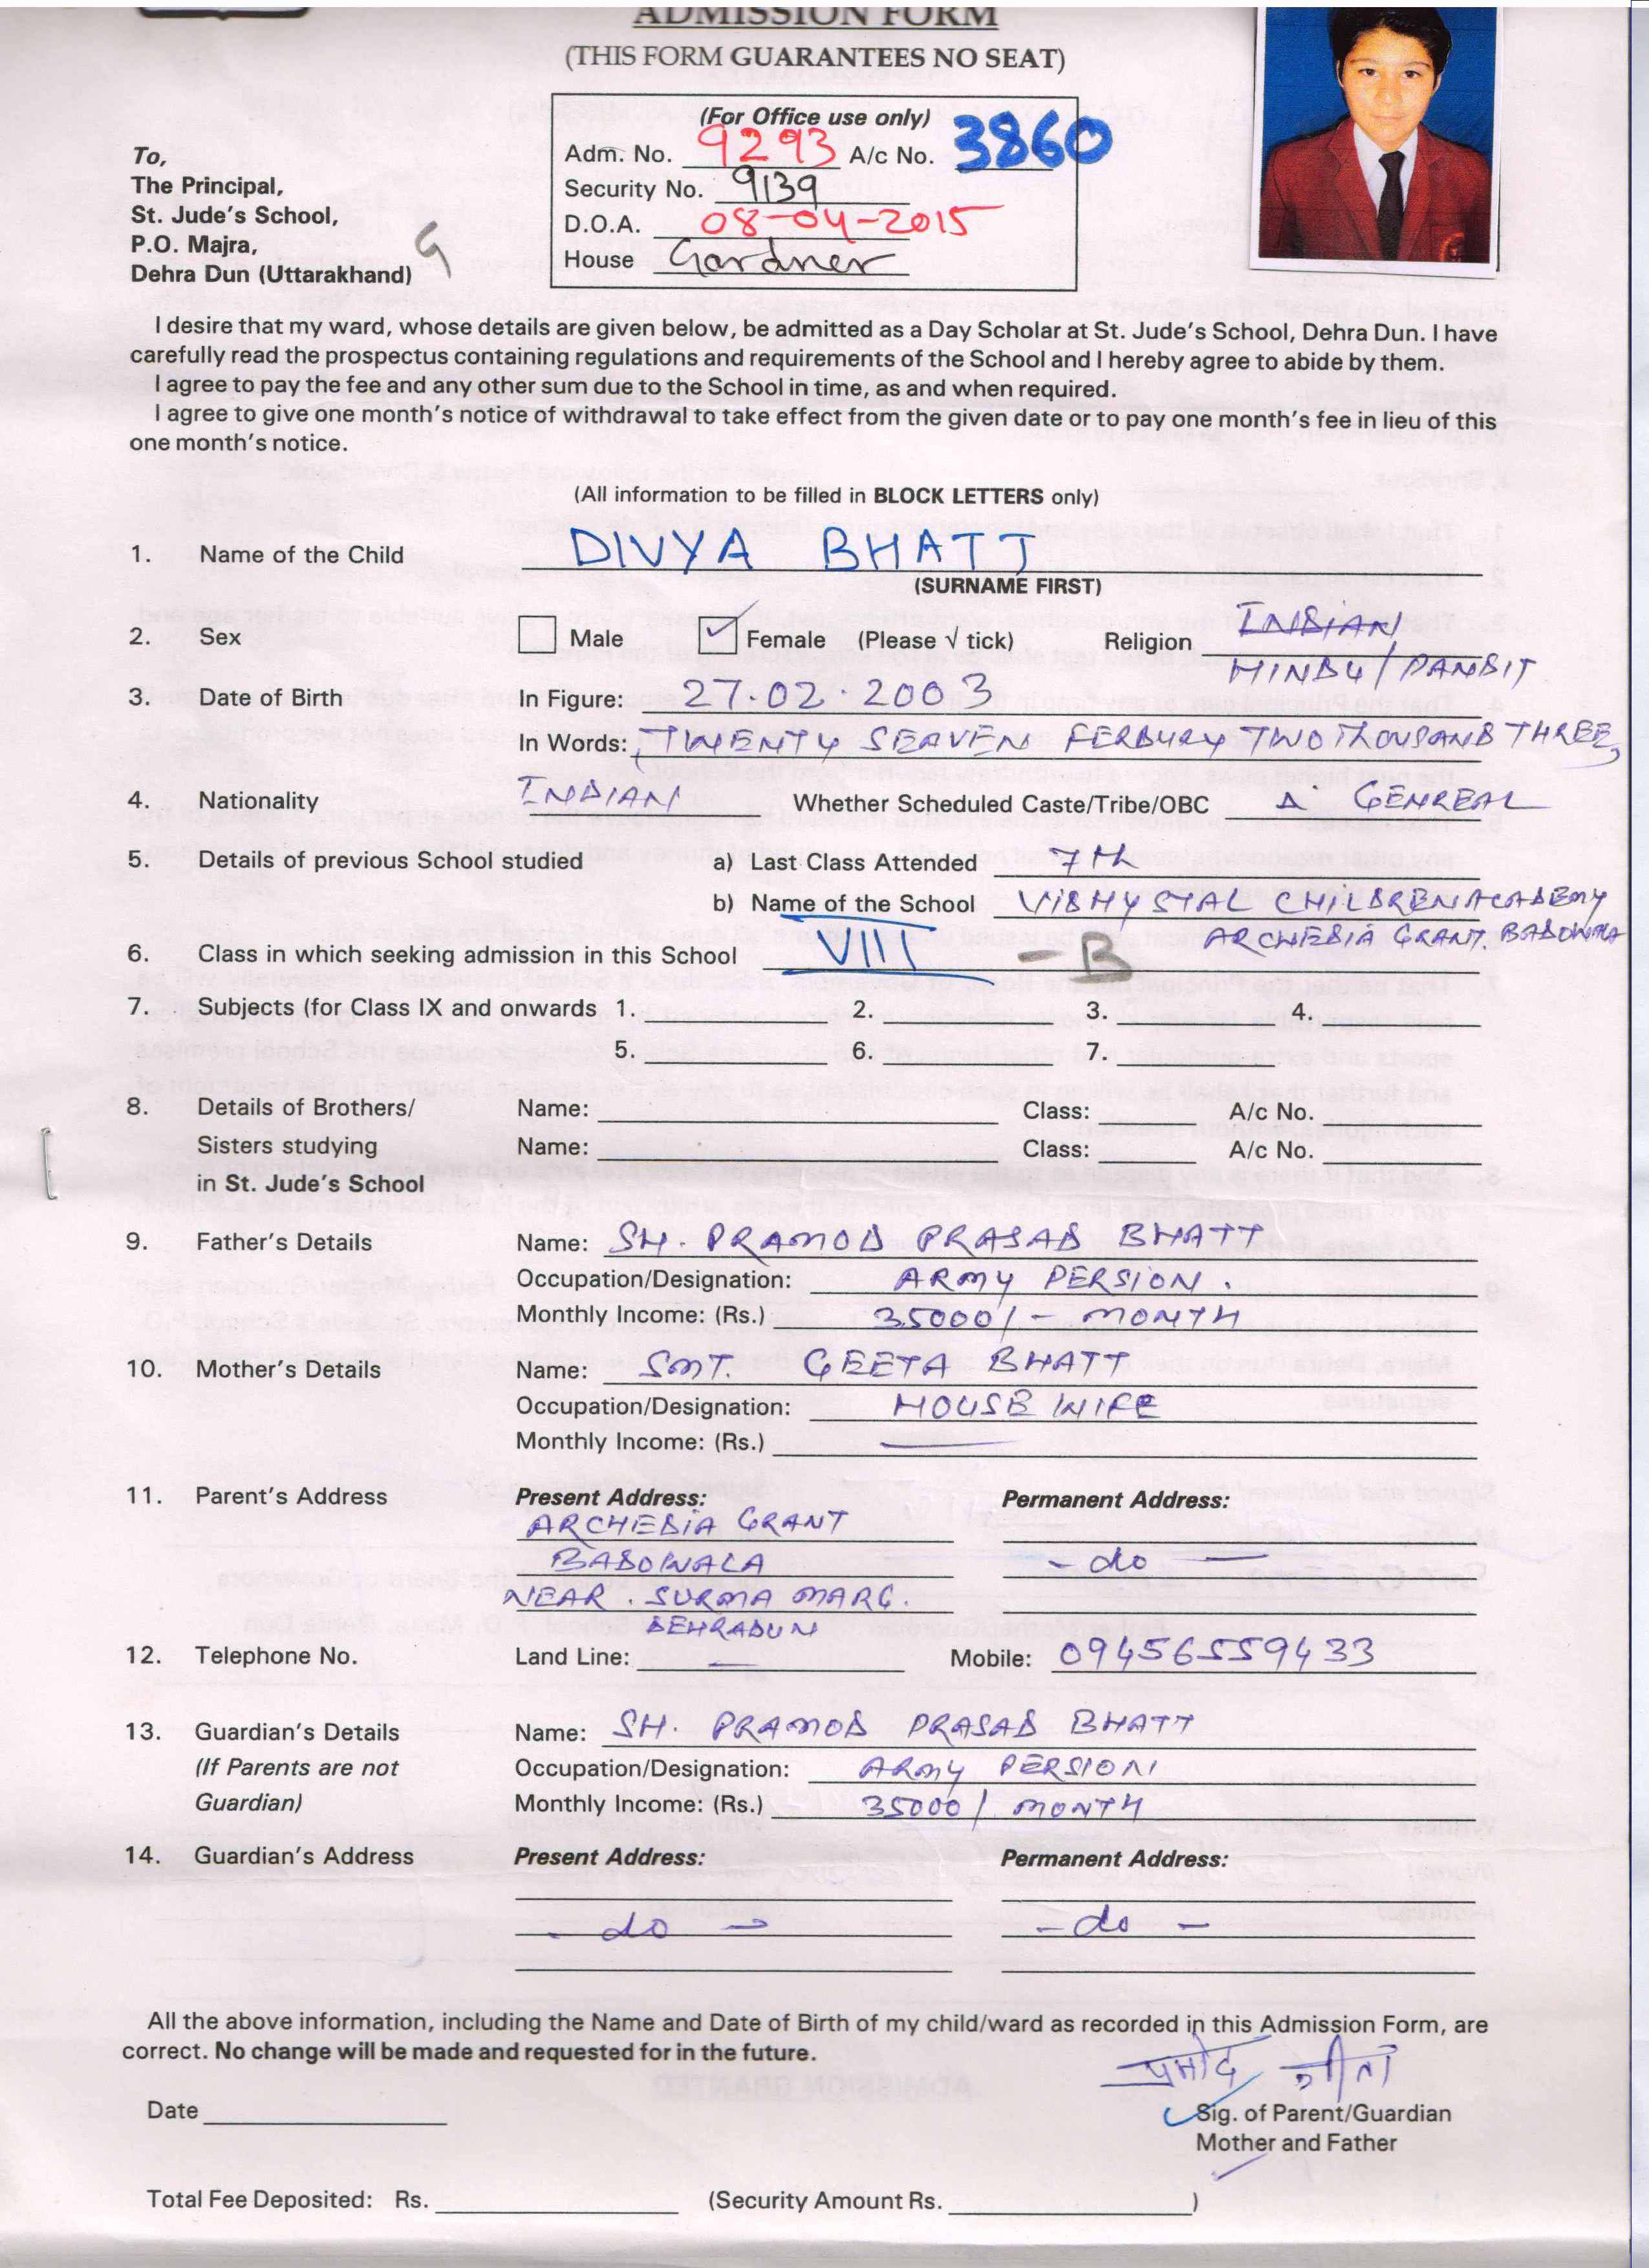 ADMISSION FORM
(THIS FORM GUARANTEES NO SEAT)
(For Office use only)
Adm. No. 9293 A/c No. 3860
Security No. 9139
D.O.A. 08-04-2015
House Gardner
To,
The Principal,
St. Jude's School,
P.O. Majra,
Dehra Dun (Uttarakhand)
G
I desire that my ward, whose details are given below, be admitted as a Day Scholar at St. Jude's School, Dehra Dun. I have
carefully read the prospectus containing regulations and requirements of the School and I hereby agree to abide by them.
I agree to pay the fee and any other sum due to the School in time, as and when required.
I agree to give one month's notice of withdrawal to take effect from the given date or to pay one month's fee in lieu of this
one month's notice.
(All information to be filled in BLOCK LETTERS only)
1. Name of the Child DIVYA BHATT
(SURNAME FIRST)
2. Sex Male Female (Please √ tick) Religion INDIAN
HINDU / PANDIT
3. Date of Birth In Figure: 27.02.2003
In Words: TWENTY SEAVEN FERBURY TWO THOUSAND THREE
4. Nationality INDIAN Whether Scheduled Caste/Tribe/OBC GENREAL
5. Details of previous School studied a) Last Class Attended 7th
b) Name of the School VISHYSTAL CHILDREN ACADEMY
ARCHEDIA GRANT. BADOWALA
6. Class in which seeking admission in this School VIII - B
7. Subjects (for Class IX and onwards 1. 2. 3. 4.
5. 6. 7.
8. Details of Brothers/ Name: Class: A/c No.
Sisters studying Name: Class: A/c No.
in St. Jude's School
9. Father's Details Name: SH. PRAMOD PRASAD BHATT
Occupation/Designation: ARMY PERSION.
Monthly Income: (Rs.) 35000/- MONTH
10. Mother's Details Name: SMT. GEETA BHATT
Occupation/Designation: HOUSE WIFE
Monthly Income: (Rs.) —
11. Parent's Address Present Address: Permanent Address:
ARCHEDIA GRANT
BADOWALA - do -
NEAR. SURMA MARG.
DEHRADUN
12. Telephone No. Land Line: — Mobile: 09456559433
13. Guardian's Details Name: SH. PRAMOD PRASAD BHATT
(If Parents are not Occupation/Designation: ARMY PERSION
Guardian) Monthly Income: (Rs.) 35000/ MONTH
14. Guardian's Address Present Address: Permanent Address:
- do - - do -
All the above information, including the Name and Date of Birth of my child/ward as recorded in this Admission Form, are
correct. No change will be made and requested for in the future.
प्रमोद गीता
Date Sig. of Parent/Guardian
Mother and Father
Total Fee Deposited: Rs. (Security Amount Rs. )